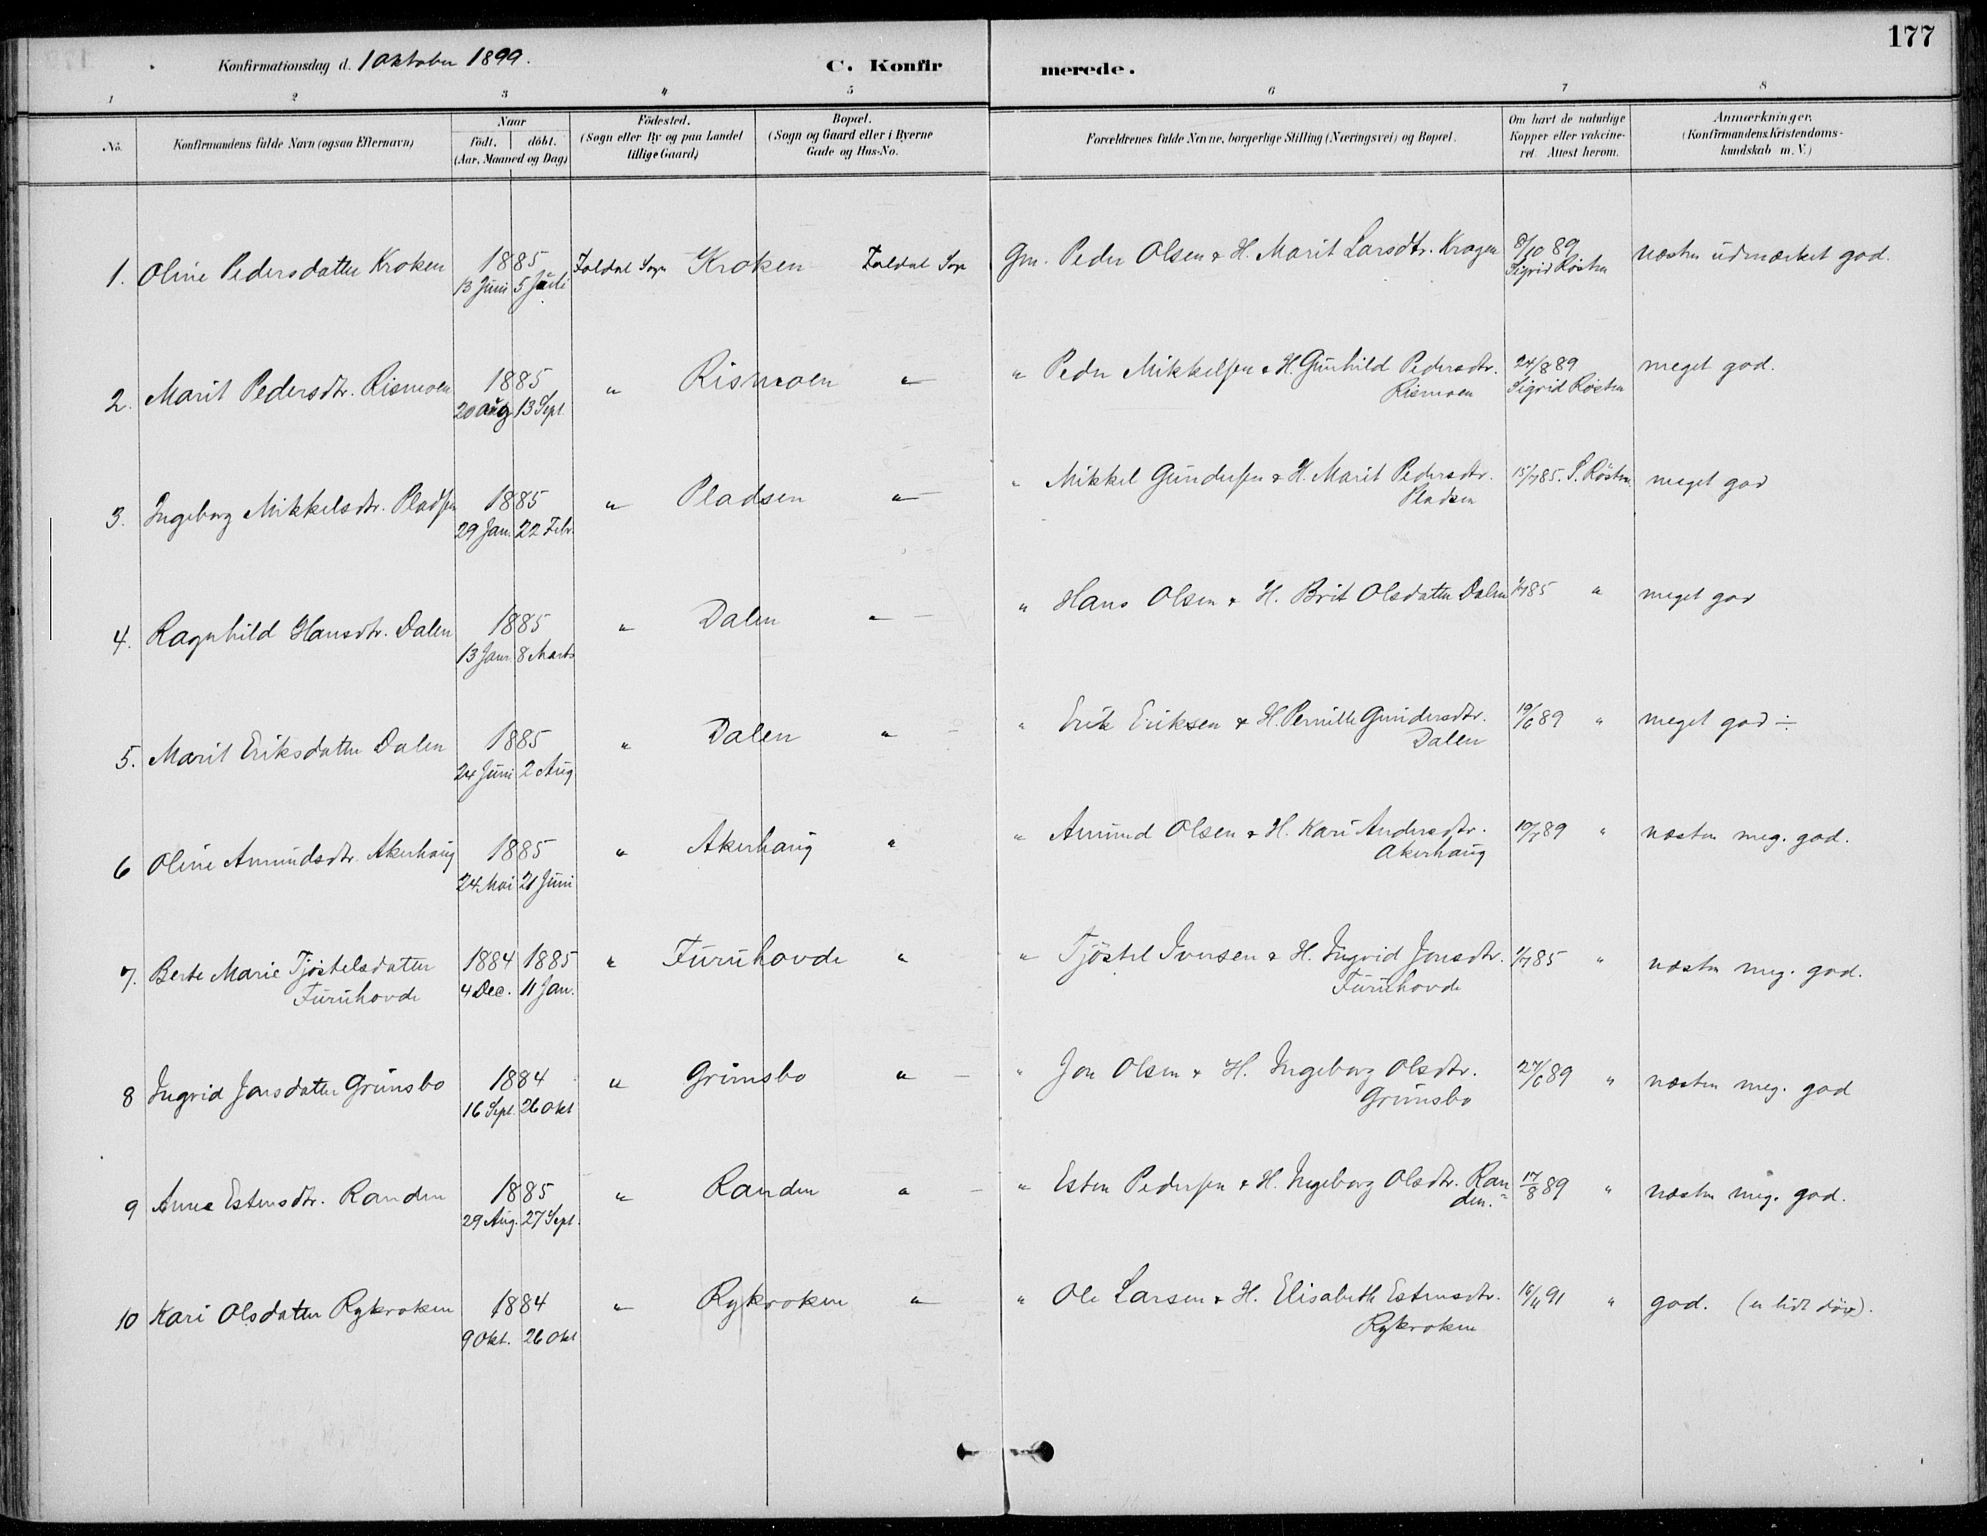 177
Konfirmationsdag d. 1 Oktober 1899.
C. Konfirmerede.
1 2 3 4 5 6 7 8
No.
Konfirmandens fulde Navn (ogsaa Efternavn)
Naar
födt. döbt.
(Aar, Maaned og Dag)
Födested.
(Sogn eller By og paa Landet
tillige Gaard)
Bopæl.
(Sogn og Gaard eller i Byerne
Gade og Hus-No.
Forældrenes fulde Navne, borgerlige Stilling (Næringsvei) og Bopæl.
Om havt de naturlige
Kopper eller vakcine-
ret. Attest herom.
Anmærkninger.
(Konfirmandens Kristendoms-
kundskab m. V.)
1. Oline Pedersdatter Kroken 1885 Foldal Sogn Kroken Foldal Sogn Gm. Peder Olsen & H. Marit Larsdtr. Krogen 8/10 89 næsten udmærket god.
13 Juni 5 Juli Sigrid Røsten
2. Marit Pedersdtr. Rismoen 1885 " Rismoen " " Peder Mikkelsen & H. Gunhild Pedersdtr. 24/8 89 meget god.
20 Aug 13 Sept. Rismoen Sigrid Røsten
3. Ingeborg Mikkelsdtr. Pladsen 1885 " Pladsen " " Mikkel Gundersen & H. Marit Pedersdtr. 15/7 85. S. Røsten meget god
29 Jan. 22 Febr. Pladsen
4. Ragnhild Hansdtr. Dalen 1885 " Dalen " " Hans Olsen & H. Brit Olsdatter Dalen 1/7 85 " meget god
13 Janr. 8 Marts
5. Marit Eriksdatter Dalen 1885 " Dalen " " Erik Eriksen & H. Pernille Gundersdtr. 19/6 89 " meget god ÷
24 Juni 2 Aug Dalen
6 Oline Amundsdtr. Akerhaug 1885 " Akerhaug " " Amund Olsen & H. Kari Andersdtr. 19/7 89 " næsten meg. god.
24 Mai 21 Juni Akerhaug
7. Berte Marie Tjøstelsdatter 1884 1885 " Furuhovde " " Tjøstel Iversen & H. Ingrid Jonsdtr. 1/7 85 " næsten meg. god.
Furuhovde 4 Dec. 11 Jan. Furuhovde
8 Ingrid Jonsdatter Grimsbo 1884 " Grimsbo " " Jon Olsen & H. Ingeborg Olsdtr. 27/6 89 " næsten meg. god
16 Sept. 26 Okt Grimsbo
9 Anne Estensdtr. Randen 1885 " Randen " " Esten Pedersen & H. Ingeborg Olsdtr. Ran= 17/8 89 " næsten meg. god.
29 Aug. 27 Sept. den.
10 Kari Olsdatter Rykroken 1884 " Rykroken " " Ole Larsen & H. Elisabeth Estensdtr. 16/11 91 " god. (er lidt døv).
9 Okt. 26 Okt Rykroken